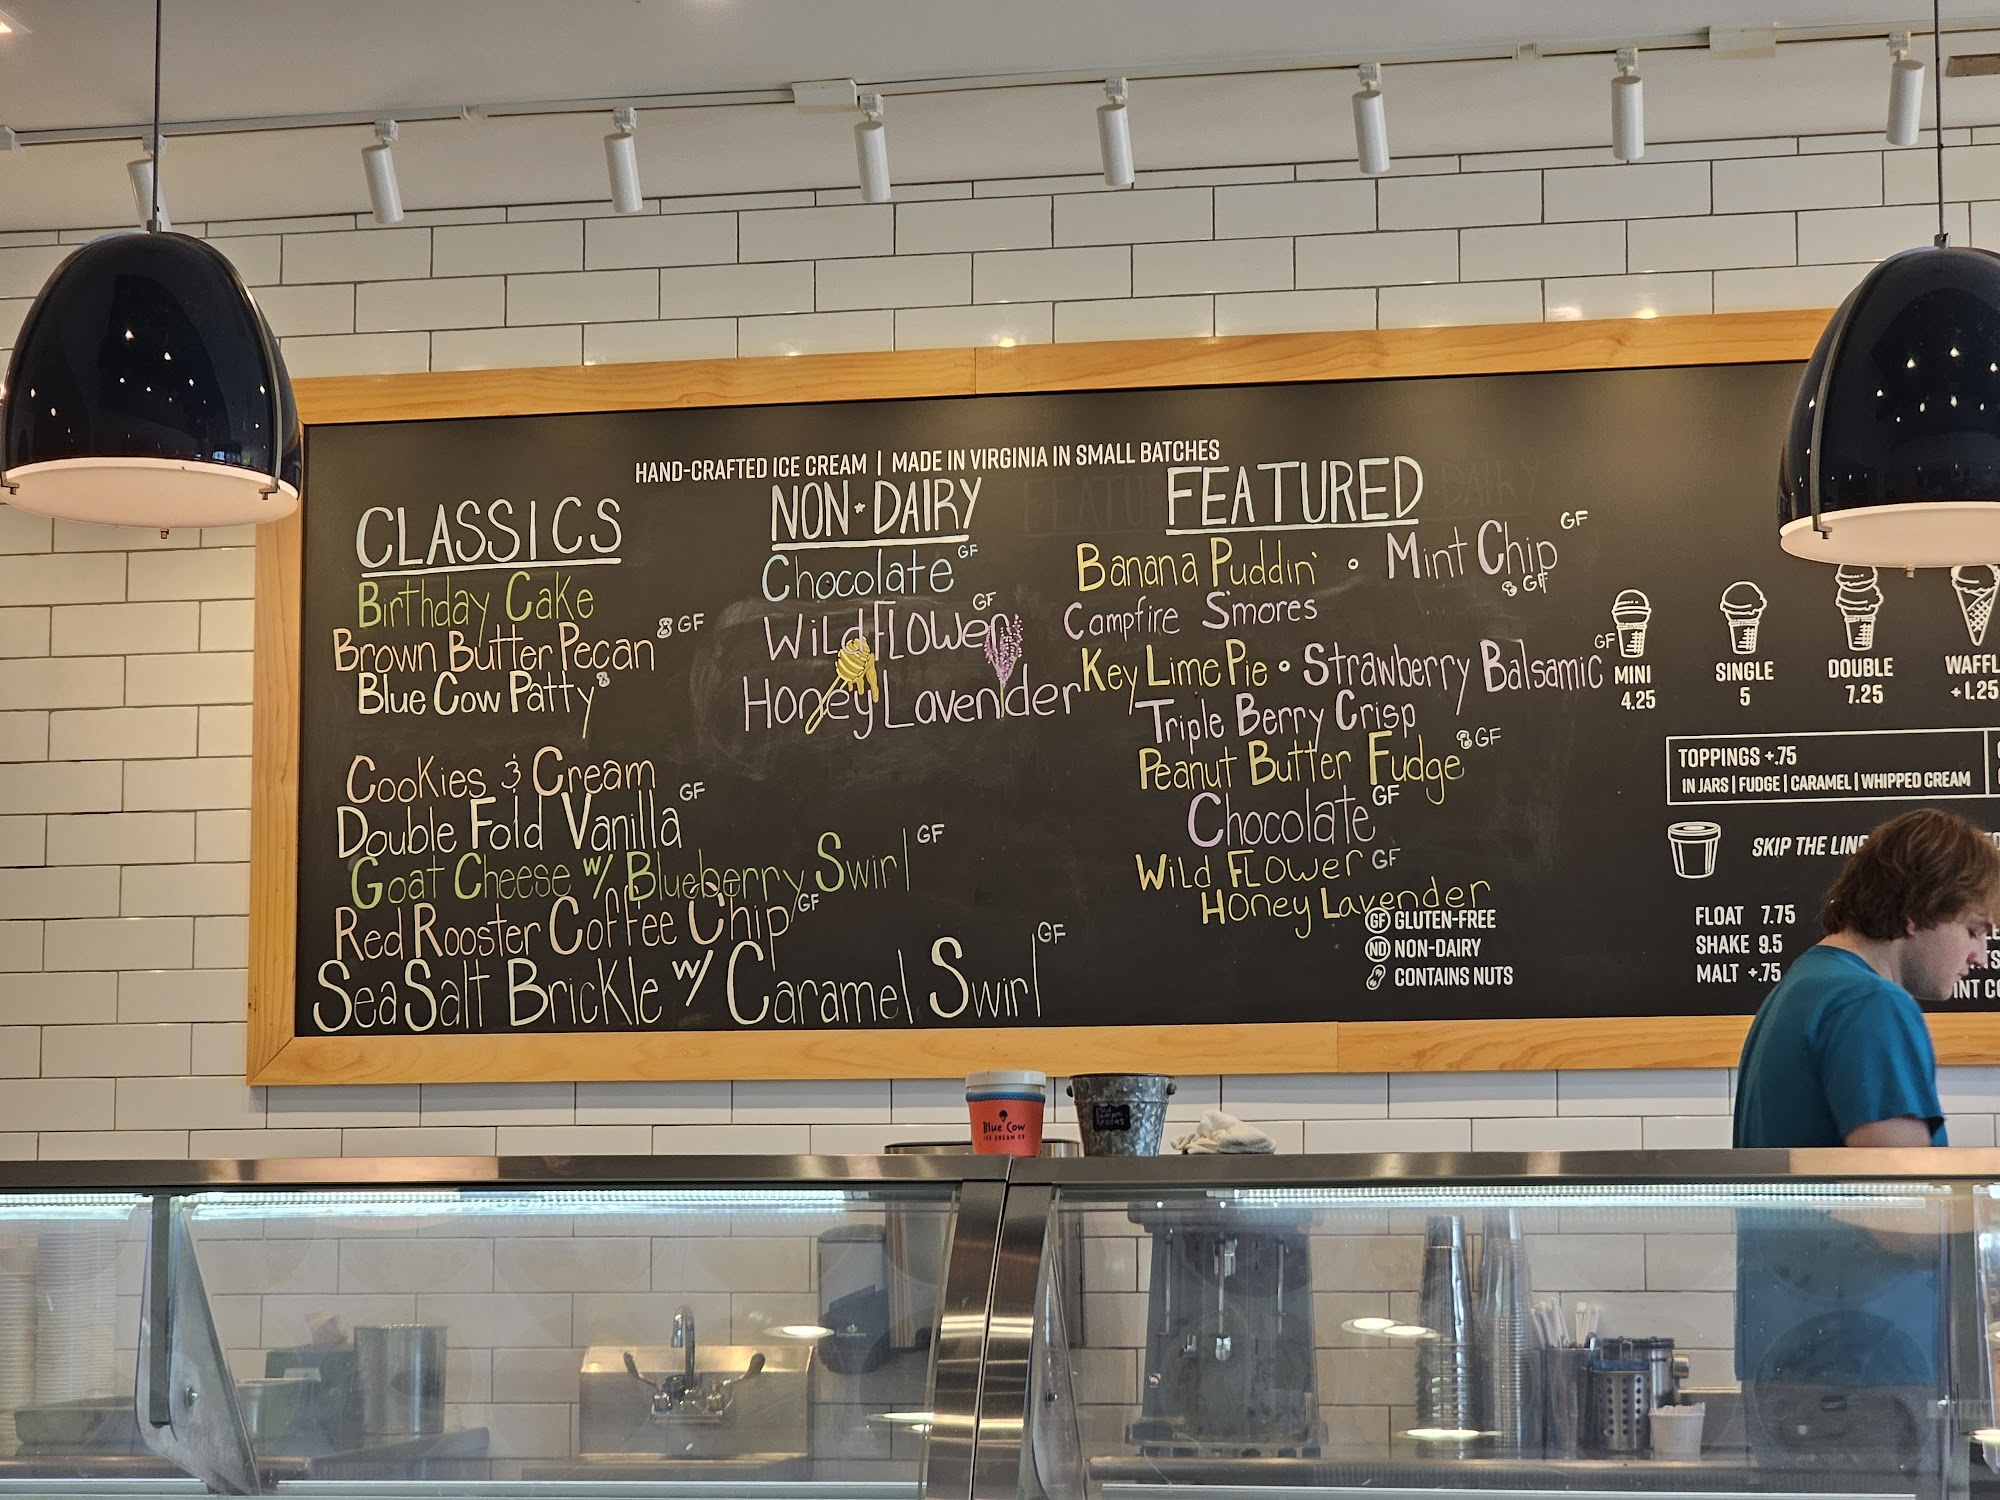 HAND-CRAFTED ICE CREAM | MADE IN VIRGINIA IN SMALL BATCHES
CLASSICS
Birthday Cake
Brown Butter Pecan GF
Blue Cow Patty
Cookies & Cream
Double Fold Vanilla GF
Goat Cheese w/ Blueberry Swirl GF
Red Rooster Coffee Chip GF
Sea Salt Brickle w/ Caramel Swirl GF
NON-DAIRY
Chocolate GF
Wild Flower GF
Honey Lavender
FEATURED
Banana Puddin' • Mint Chip GF
Campfire S'mores GF
Key Lime Pie • Strawberry Balsamic GF
Triple Berry Crisp
Peanut Butter Fudge GF
Chocolate GF
Wild Flower GF
Honey Lavender
GF GLUTEN-FREE
ND NON-DAIRY
CONTAINS NUTS
MINI
4.25
SINGLE
5
DOUBLE
7.25
WAFFL
+1.25
TOPPINGS +.75
IN JARS | FUDGE | CARAMEL | WHIPPED CREAM
SKIP THE LINE
FLOAT 7.75
SHAKE 9.5
MALT +.75
Blue Cow
ICE CREAM CO